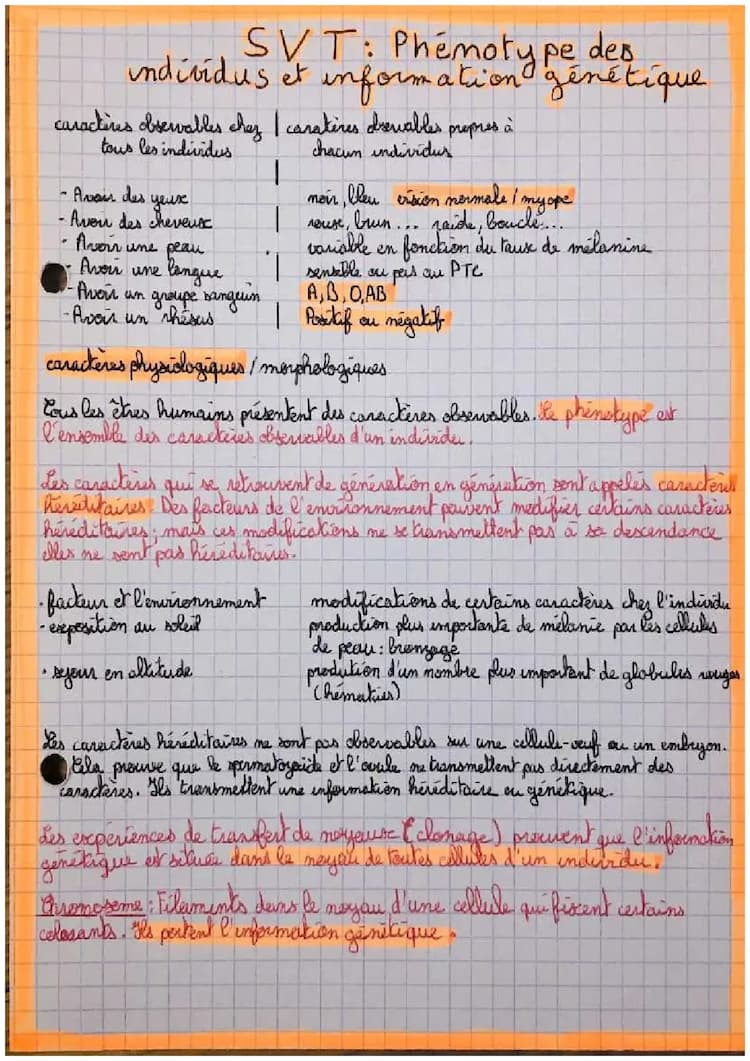 SVT : Phénotype des
individus et information génétique
caractères observables chez | caratères observables propres à
tous les individus | chacun individus
- Avoir des yeux | noir, bleu vision normale / myope
- Avoir des cheveux | rouse, brun... raide, bouclé...
- Avoir une peau | variable en fonction du taux de mélanine
- Avoir une langue | sensible ou pas au PTC
- Avoir un groupe sanguin | A, B, O, AB
- Avoir un rhésus | Positif ou négatif
caractères physiologiques / morphologiques
Tous les êtres humains présentent des caractères observables. Le phénotype est
l'ensemble des caractères observables d'un individu.
Les caractères qui se retrouvent de génération en génération sont appelés caractères
héréditaires. Des facteurs de l'environnement peuvent modifier certains caractères
héréditaires ; mais ces modifications ne se transmettent pas à sa descendance
elles ne sont pas héréditaires.
· facteur et l'environnement modifications de certains caractères chez l'individu
- exposition au soleil production plus importante de mélanie par les cellules
de peau : bronzage
· sejour en altitude prodution d'un nombre plus important de globules rouges
(hématies)
Les caractères héréditaires ne sont pas observables sur une cellule-œuf ou un embryon.
Cela prouve que le spermatozoïde et l'ovule ne transmettent pas directement des
caractères. Ils transmettent une information héréditaire ou génétique.
Les expériences de transfert de noyaux (clonage) prouvent que l'information
génétique est située dans le noyau de toutes cellules d'un individu.
Chromosome : Filaments dans le noyau d'une cellule qui fixent certains
colorants. Ils portent l'information génétique.